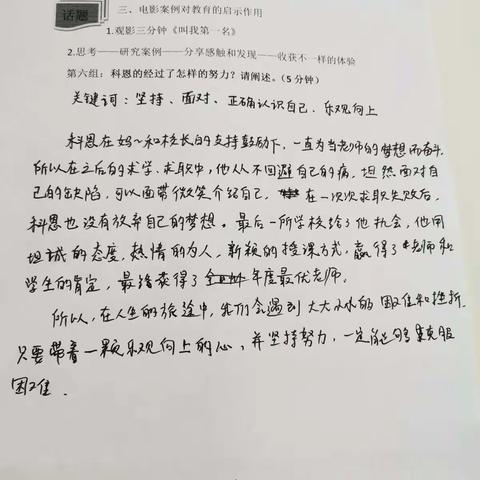 话题
三、电影案例对教育的启示作用
1.观影三分钟《叫我第一名》
2.思考——研究案例——分享感触和发现——收获不一样的体验
第六组：科恩的经过了怎样的努力？请阐述。（5分钟）
关键词：坚持、面对、正确认识自己、乐观向上
科恩在妈~和校长的支持鼓励下，一直为当老师的梦想而奋斗.
所以在之后的求学、求职中，他从不回避自己的病，坦然面对自
己的缺陷，可以面带微笑介绍自己，在一次次求职失败后，
科恩也没有放弃自己的梦想。最后一所学校给了他机会，他用
坦诚的态度，热情的为人，新颖的授课方式，赢得了老师和
学生的肯定，最终获得了年度最优老师。
所以，在人生的旅途中，我们会遇到大大小小的困难和挫折.
只要带着一颗乐观向上的心，并坚持努力，一定能够克服
困难.